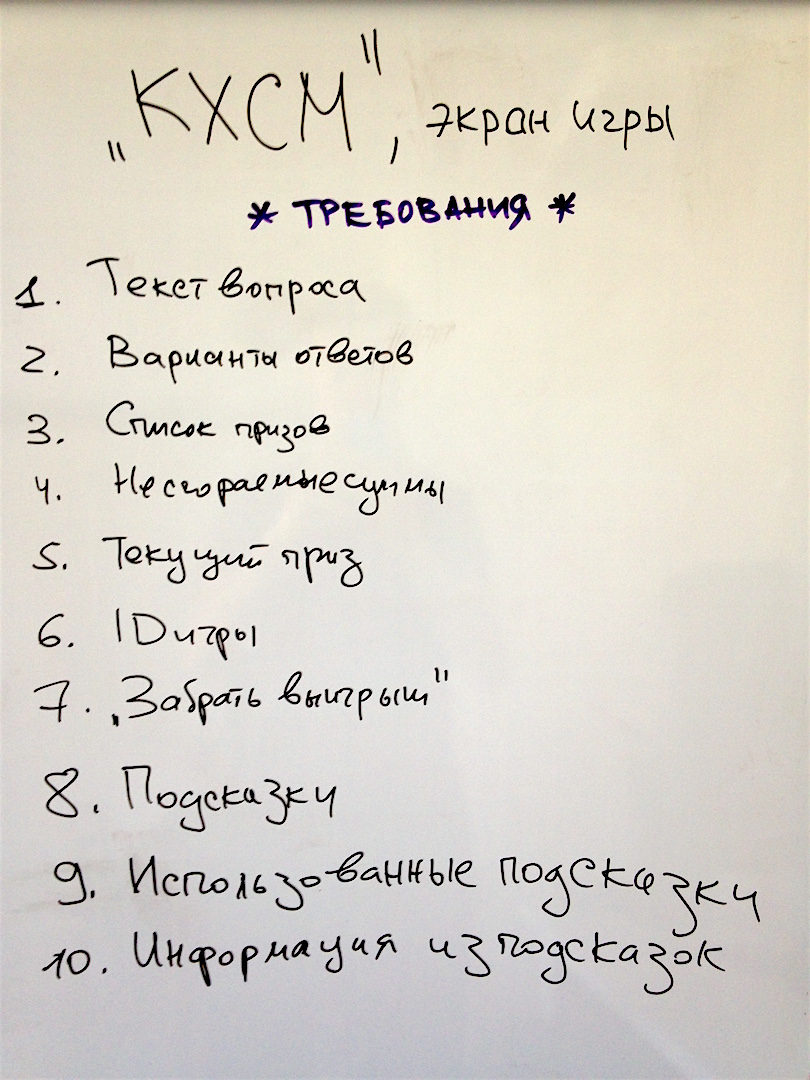 „КХСМ", экран игры
* ТРЕБОВАНИЯ *
1. Текст вопроса
2. Варианты ответов
3. Список призов
4. Несгораемые суммы
5. Текущий приз
6. ID игры
7. „Забрать выигрыш"
8. Подсказки
9. Использованные подсказки
10. Информация из подсказок